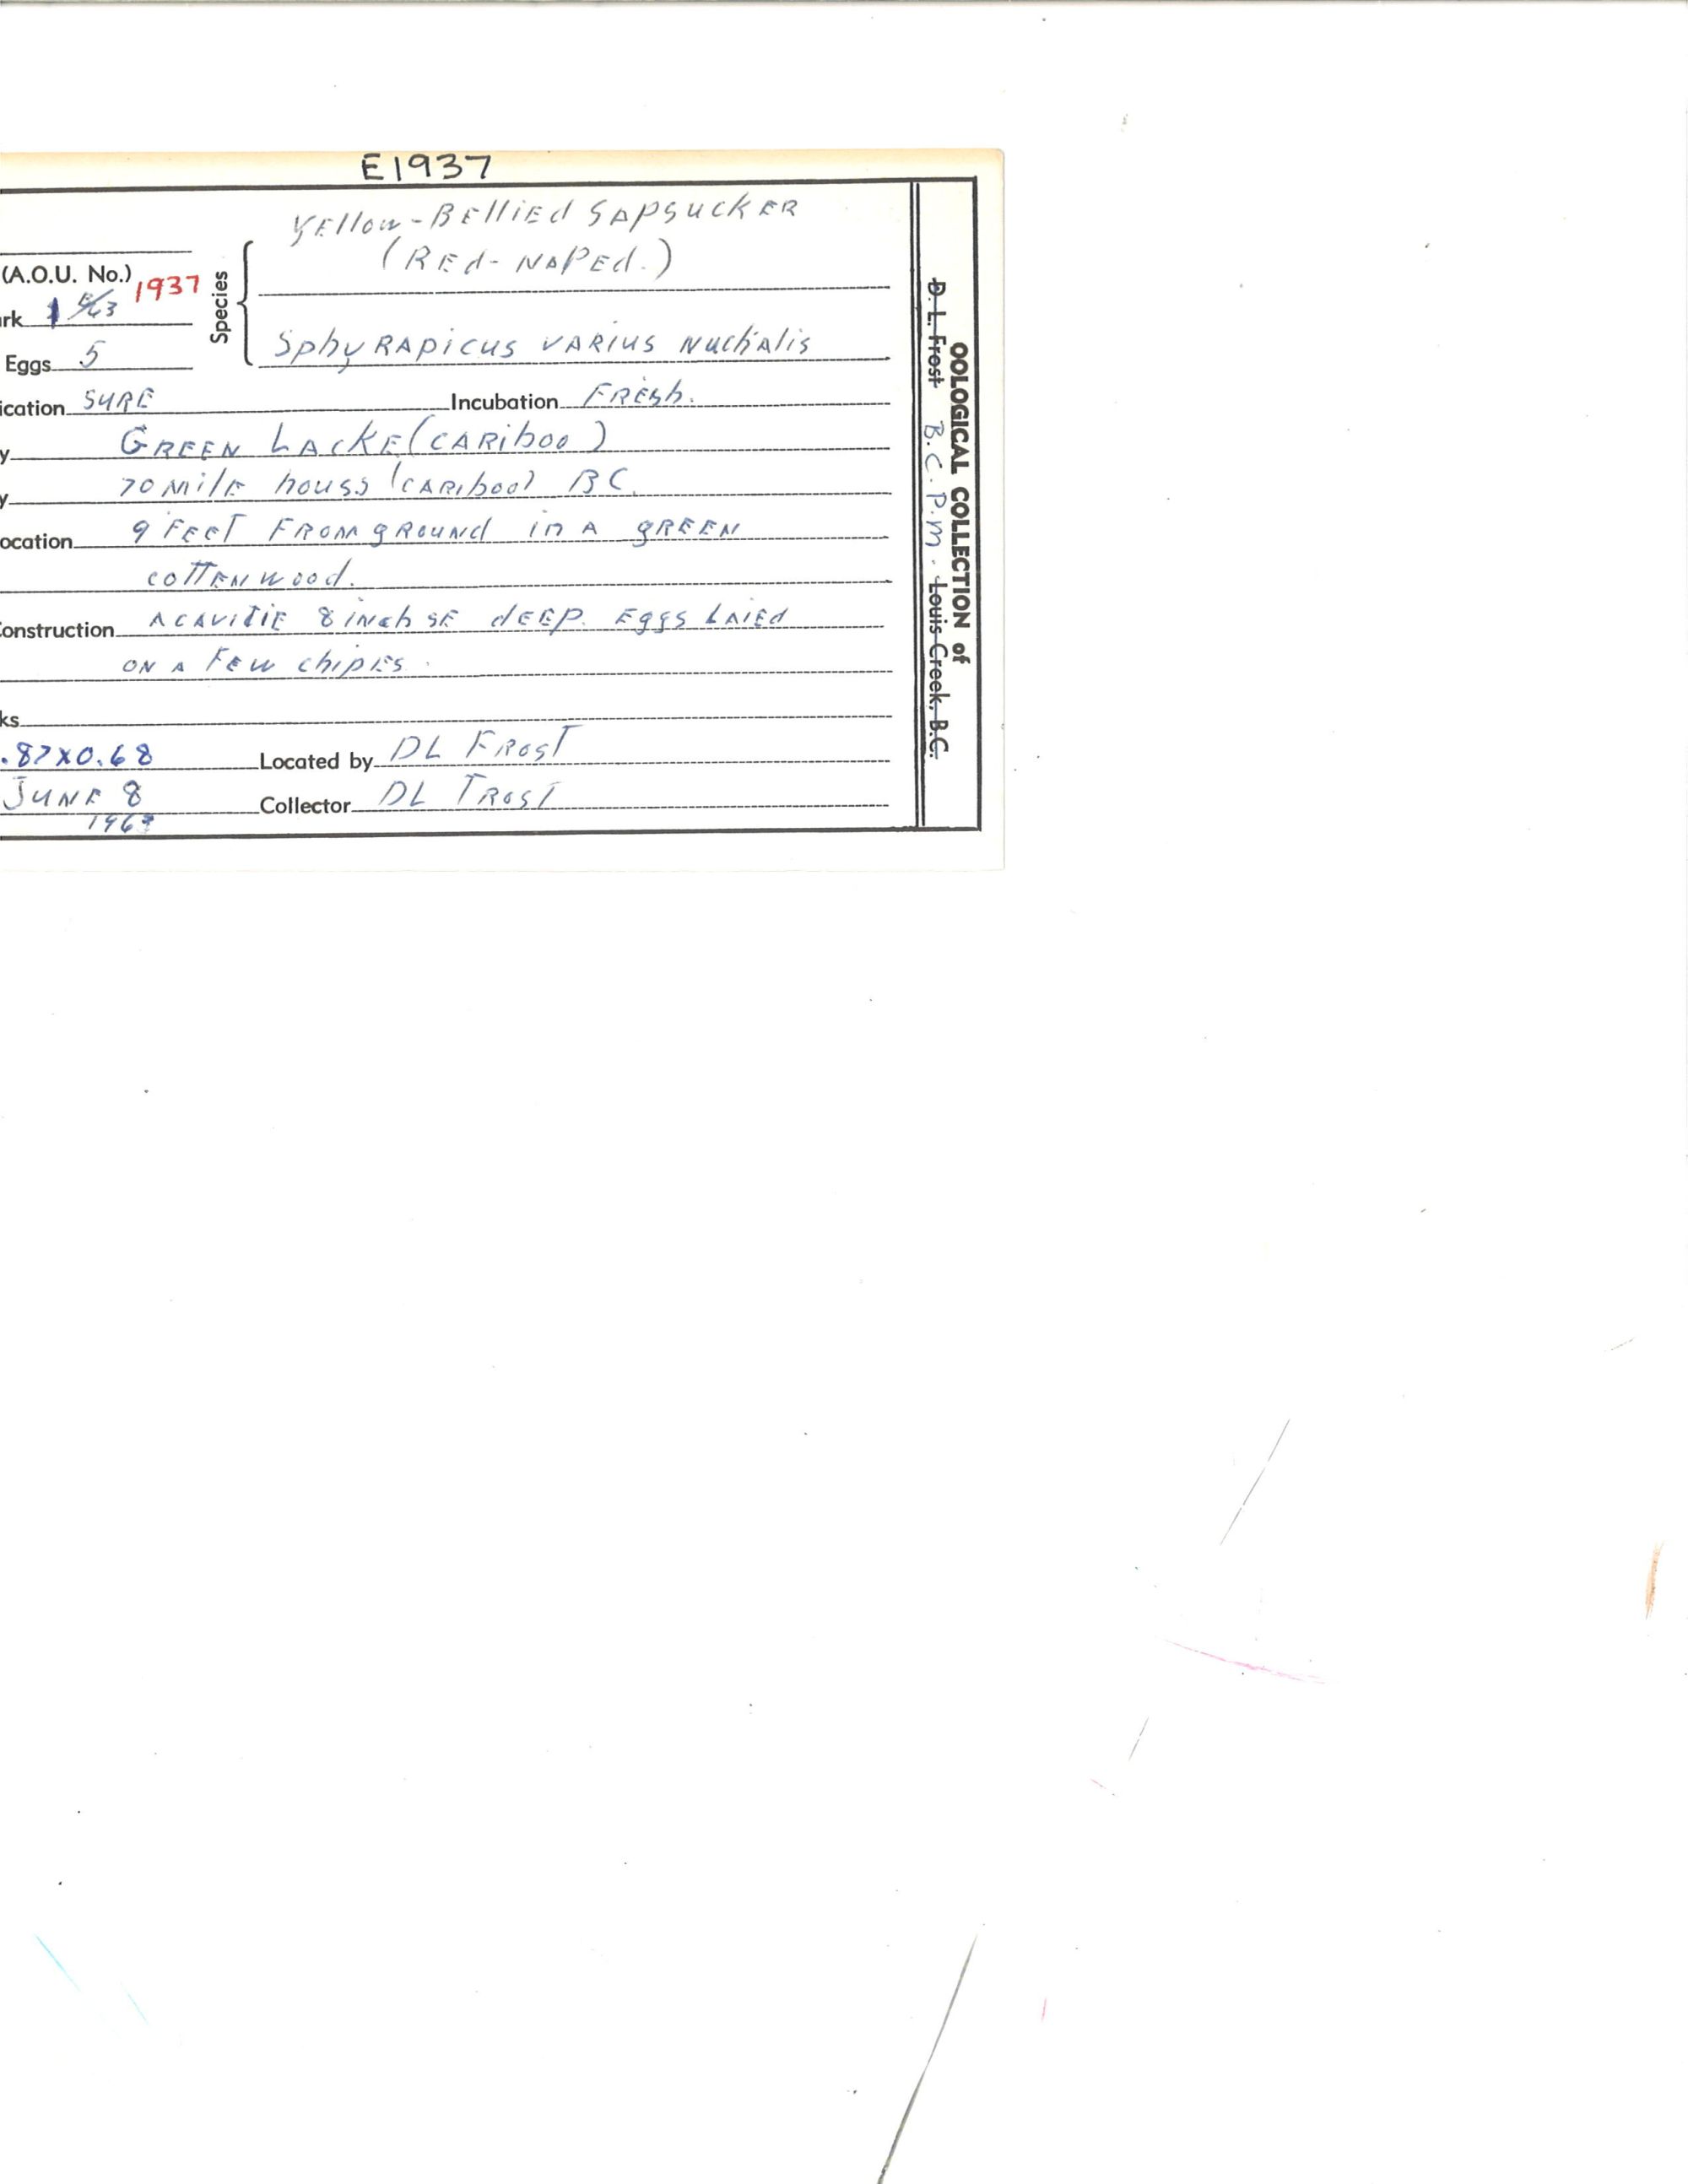 E1937
Yellow-Bellied Sapsucker
(Red-Naped.)
(A.O.U. No.) 1937
Species
rk 1 5/63
Eggs 5
Sphyrapicus varius nuchalis
ication SURE Incubation Fresh.
y GREEN LACKE (CARIBOO)
y 70 Mile houss (CARIBOO) BC.
ocation 9 FEET FROM gROUND in A gREEN
cottenwood.
Construction A CAVITIE 8 inchse dEEP. Eggs LAIED
ON A FEW chipes.
ks
.87x0.68 Located by DL FROST
JUNE 8 Collector DL TROST
OOLOGICAL COLLECTION of
D. L. Frost B.C.P.M. Louis Creek, B.C.